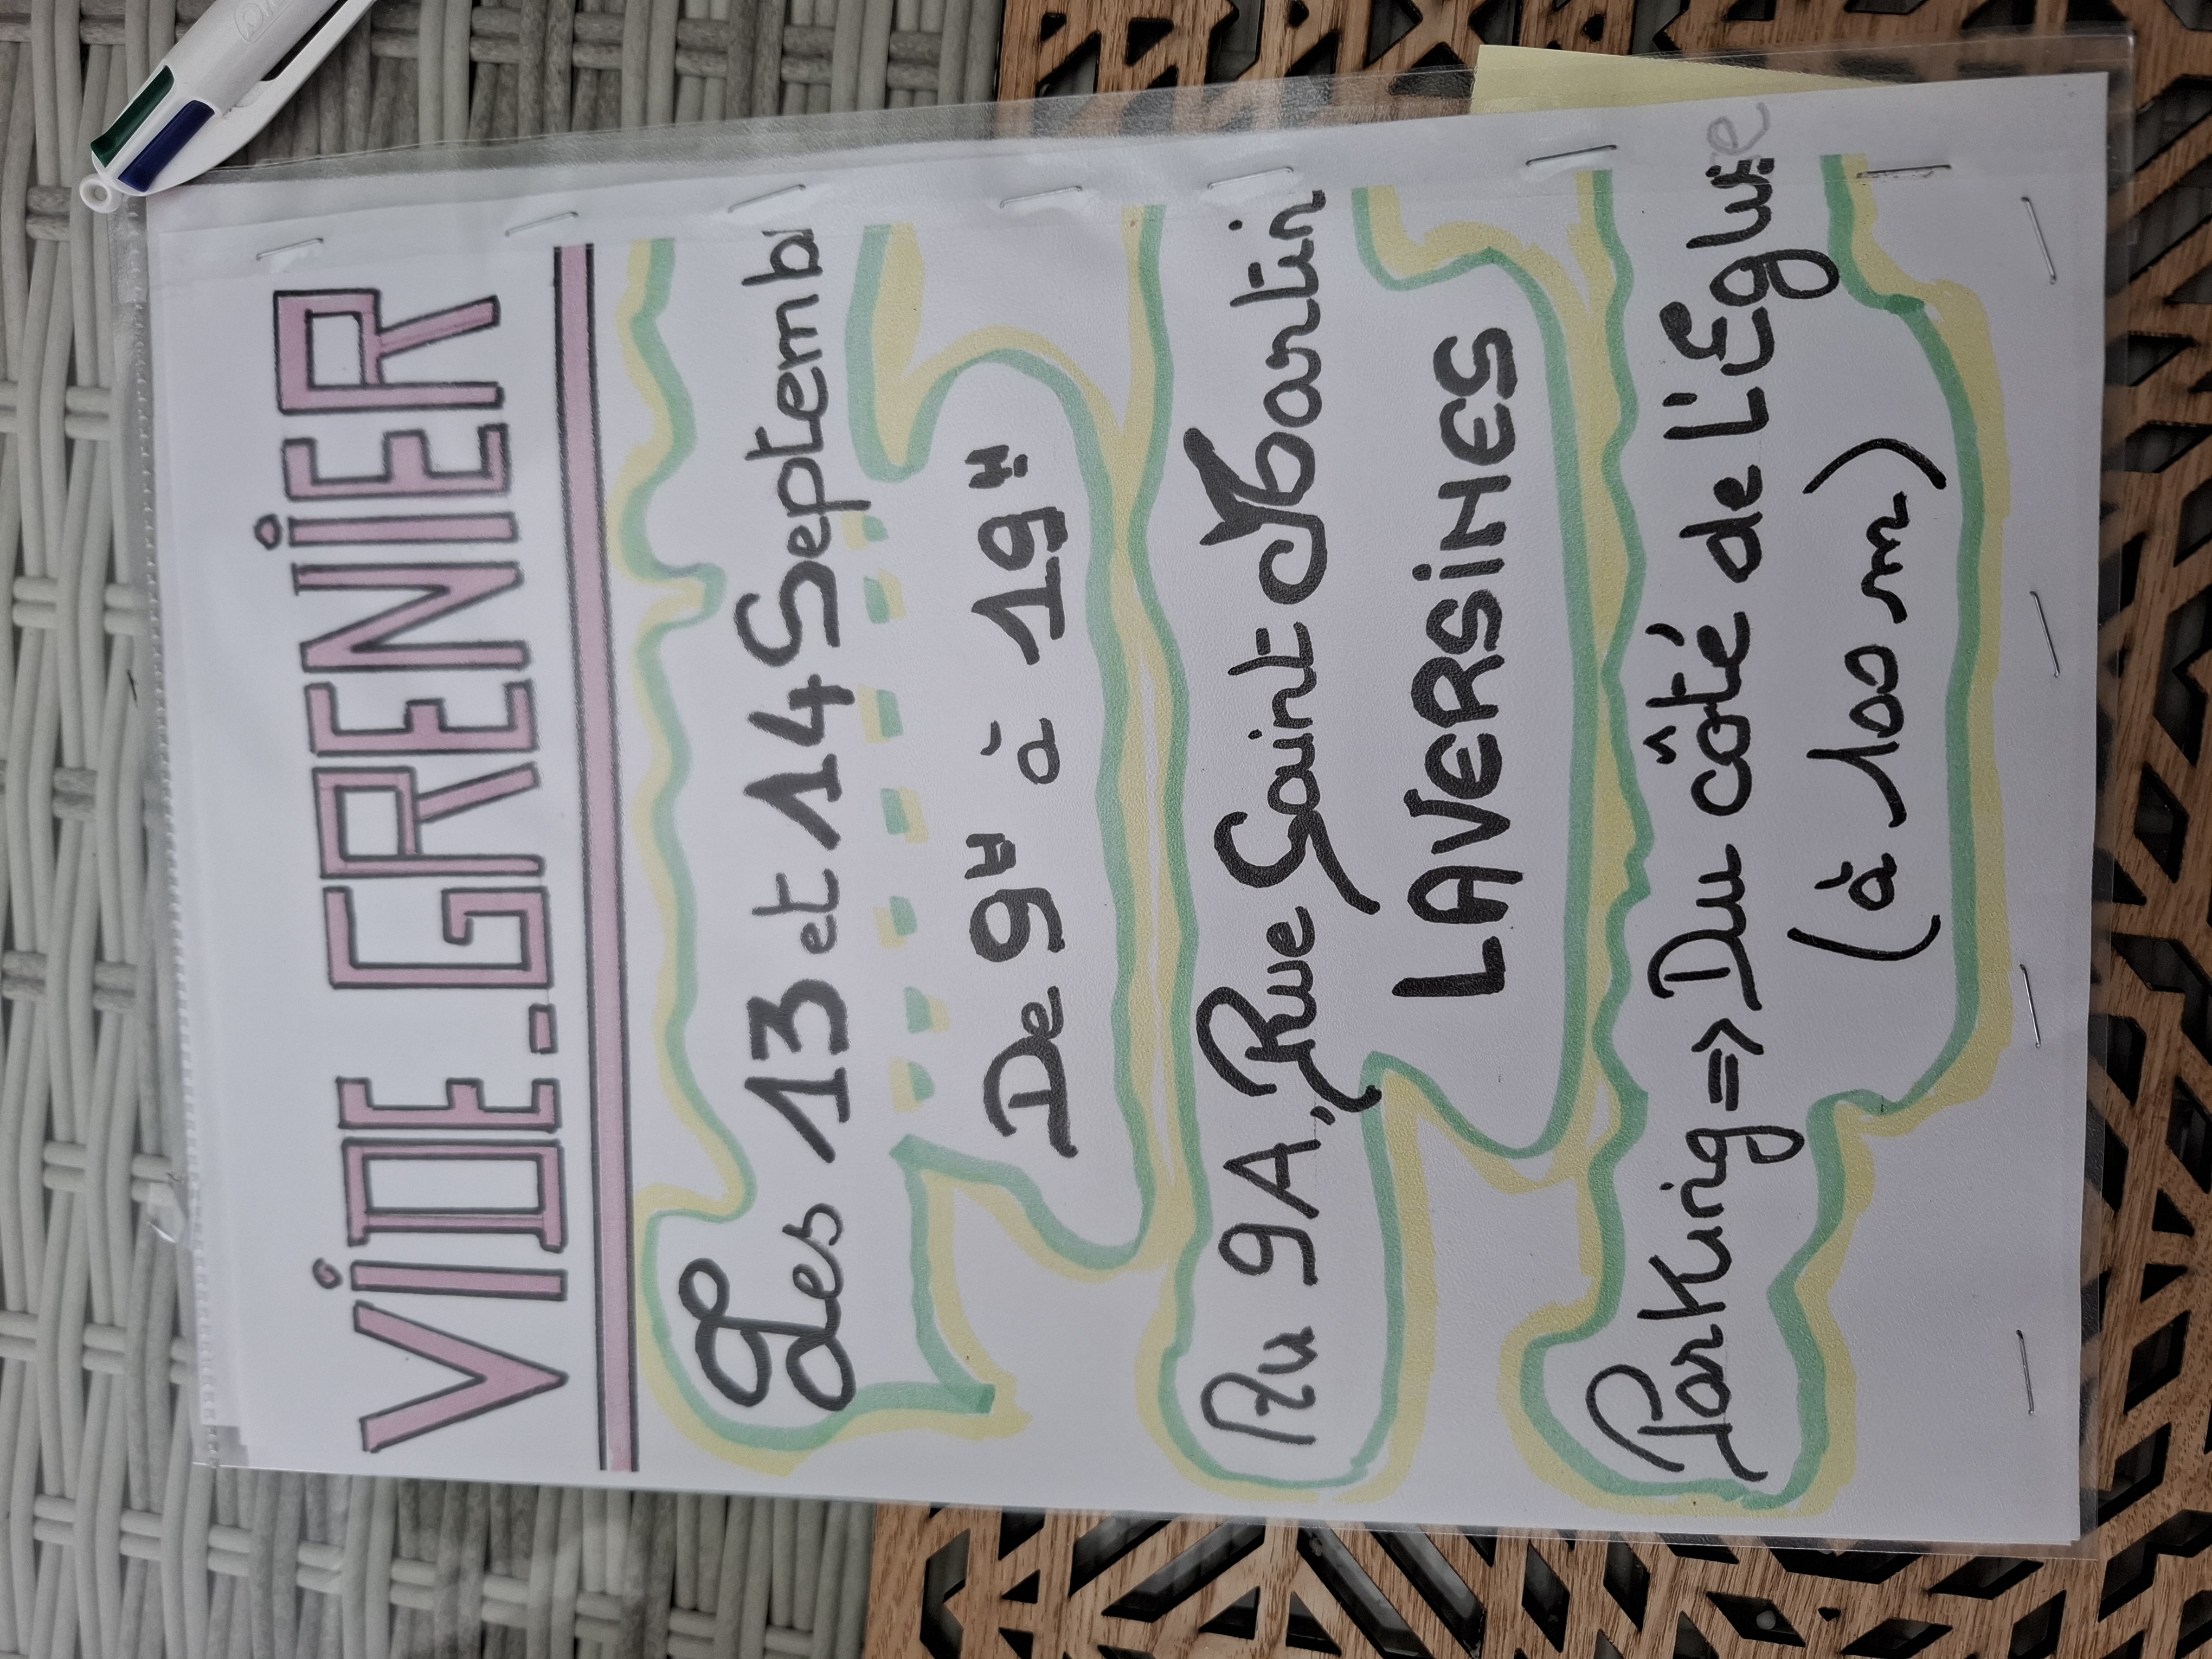 ViDE-GRENiER
Les 13 et 14 Septemb
De 9H à 19H
Au 9A, Rue Saint Martin
LAVERSiNES
Parking => Du côté de l'Eglise
(à 100 m)